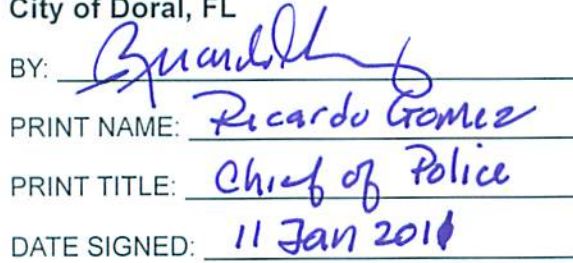 City of Doral, FL
BY:
PRINT NAME: Ricardo Gomez
PRINT TITLE: Chief of Police
DATE SIGNED: 11 Jan 2011